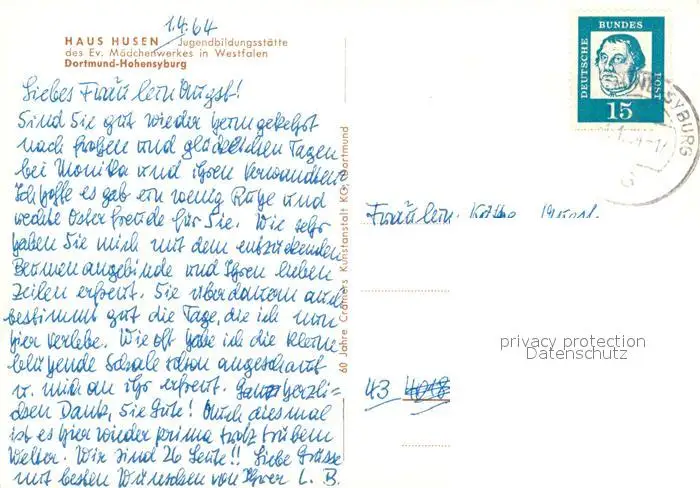 1.4.64
HAUS HUSEN Jugendbildungsstätte
des Ev. Mädchenwerkes in Westfalen
Dortmund-Hohensyburg
Liebes Fräulein Angst!
Sind Sie gut wieder heimgekehrt
nach frohen und glücklichen Tagen
bei Monika und Ihren Verwandten
Ich hoffe es gab ein wenig Ruhe und
rechte Osterfreude für Sie. Wie sehr
haben Sie mich mit dem entzückenden
Blumenangebinde und Ihren lieben
Zeilen erfreut. Sie überdauern auch
bestimmt gut die Tage, die ich nun
hier verlebe. Wie oft habe ich die kleine
blühende Schale schon angeschaut
u. mich an ihr erfreut. Ganz herzli-
chen Dank, Sie Gute! Auch diesmal
ist es hier wieder prima trotz trübem
Wetter. Wir sind 26 Leute!! Liebe Grüsse
mit besten Wünschen von Ihrer L. B.
60 Jahre Cramers Kunstanstalt KG, Dortmund
DEUTSCHE BUNDES POST
15
SYBURG
Fräulein Käthe
43
privacy protection
Datenschutz